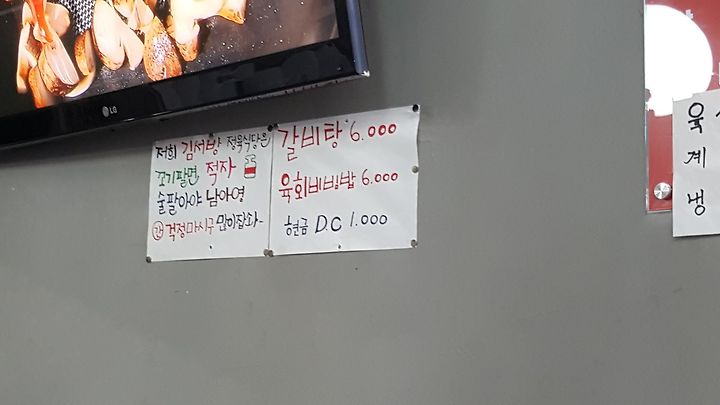 LG
저희 김서방 정육식당은
꼬기팔면 적자
술팔아야 남아영
걱정마시구 많이잡솨~
갈비탕 6.000
육회비빔밥 6.000
현금 D.C 1.000
육
계
냉